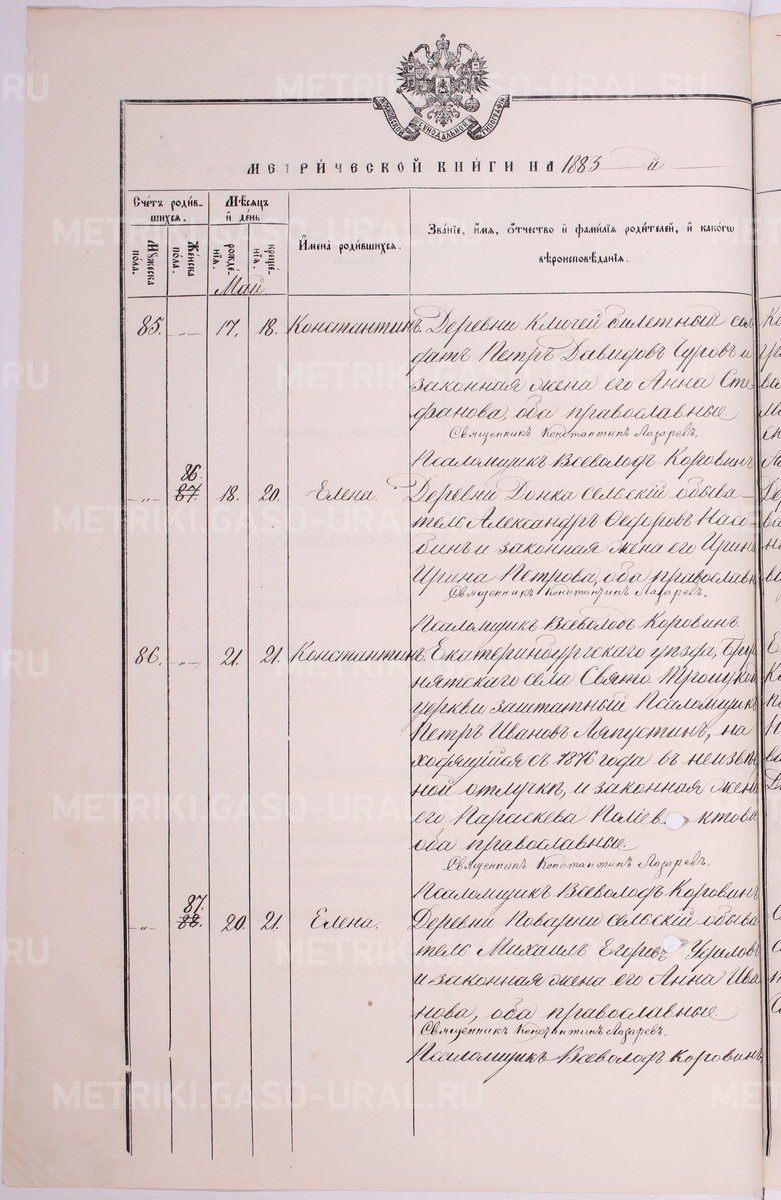 МОСКОВСКОЙ СѴНОДАЛЬНОЙ ТИПОГРАФІИ
МЕТРИ́ЧЕСКОЙ КНИ́ГИ НА 1883 й
Сче́тъ роди́в-
шихся.
Мꙋ́жеска
по́ла.
Же́нска
по́ла.
Мѣ́сяцъ
и҆ де́нь
рожде́-
нїѧ.
креще́-
нїѧ.
И҆мена̀ роди́вшихся.
Зва́нїе, и҆́мѧ, ѻ҆́тчество и҆ фами́лїѧ роди́телей, и҆ како́гѡ
вѣроисповѣ́данїѧ.
Май
85. -„- 17. 18. Константинъ. Деревни Ключей билетный сол-
датъ Петръ Давидовъ Чуровъ и
законная жена его Анна Сте-
фанова, оба православные
Священникъ Константинъ Лазаревъ.
Псаломщикъ Всеволодъ Коровинъ
86.
-„- 87. 18. 20. Елена. Деревни Донка сельскій обыва-
тель Александръ Ѳедоровъ Наса-
бинъ и законная жена его Ирин
Ирина Петрова, оба православн
Священникъ Константинъ Лазаревъ.
Псаломщикъ Всеволодъ Коровинъ
86. -„- 21. 21. Константинъ. Екатеринбургскаго уѣзда,
нятскаго села Свято Троицкой
церкви заштатный Псаломщикъ
Петръ Ивановъ Ляпустинъ, на
ходящійся съ 1876 года въ неизвѣ
ной отлучкѣ, и законная жена
его Параскева Поліев ктова
оба православные.
Священникъ Константинъ Лазаревъ.
Псаломщикъ Всеволодъ Коровинъ
87.
-„- 88. 20. 21. Елена. Деревни Поварни сельскій обыва
тель Михаилъ Егоровъ Удаловъ
и законная жена его Анна Ива
нова, оба православные
Священникъ Константинъ Лазаревъ.
Псаломщикъ Всеволодъ Коровинъ
METRIKI.GASO-URAL.RU